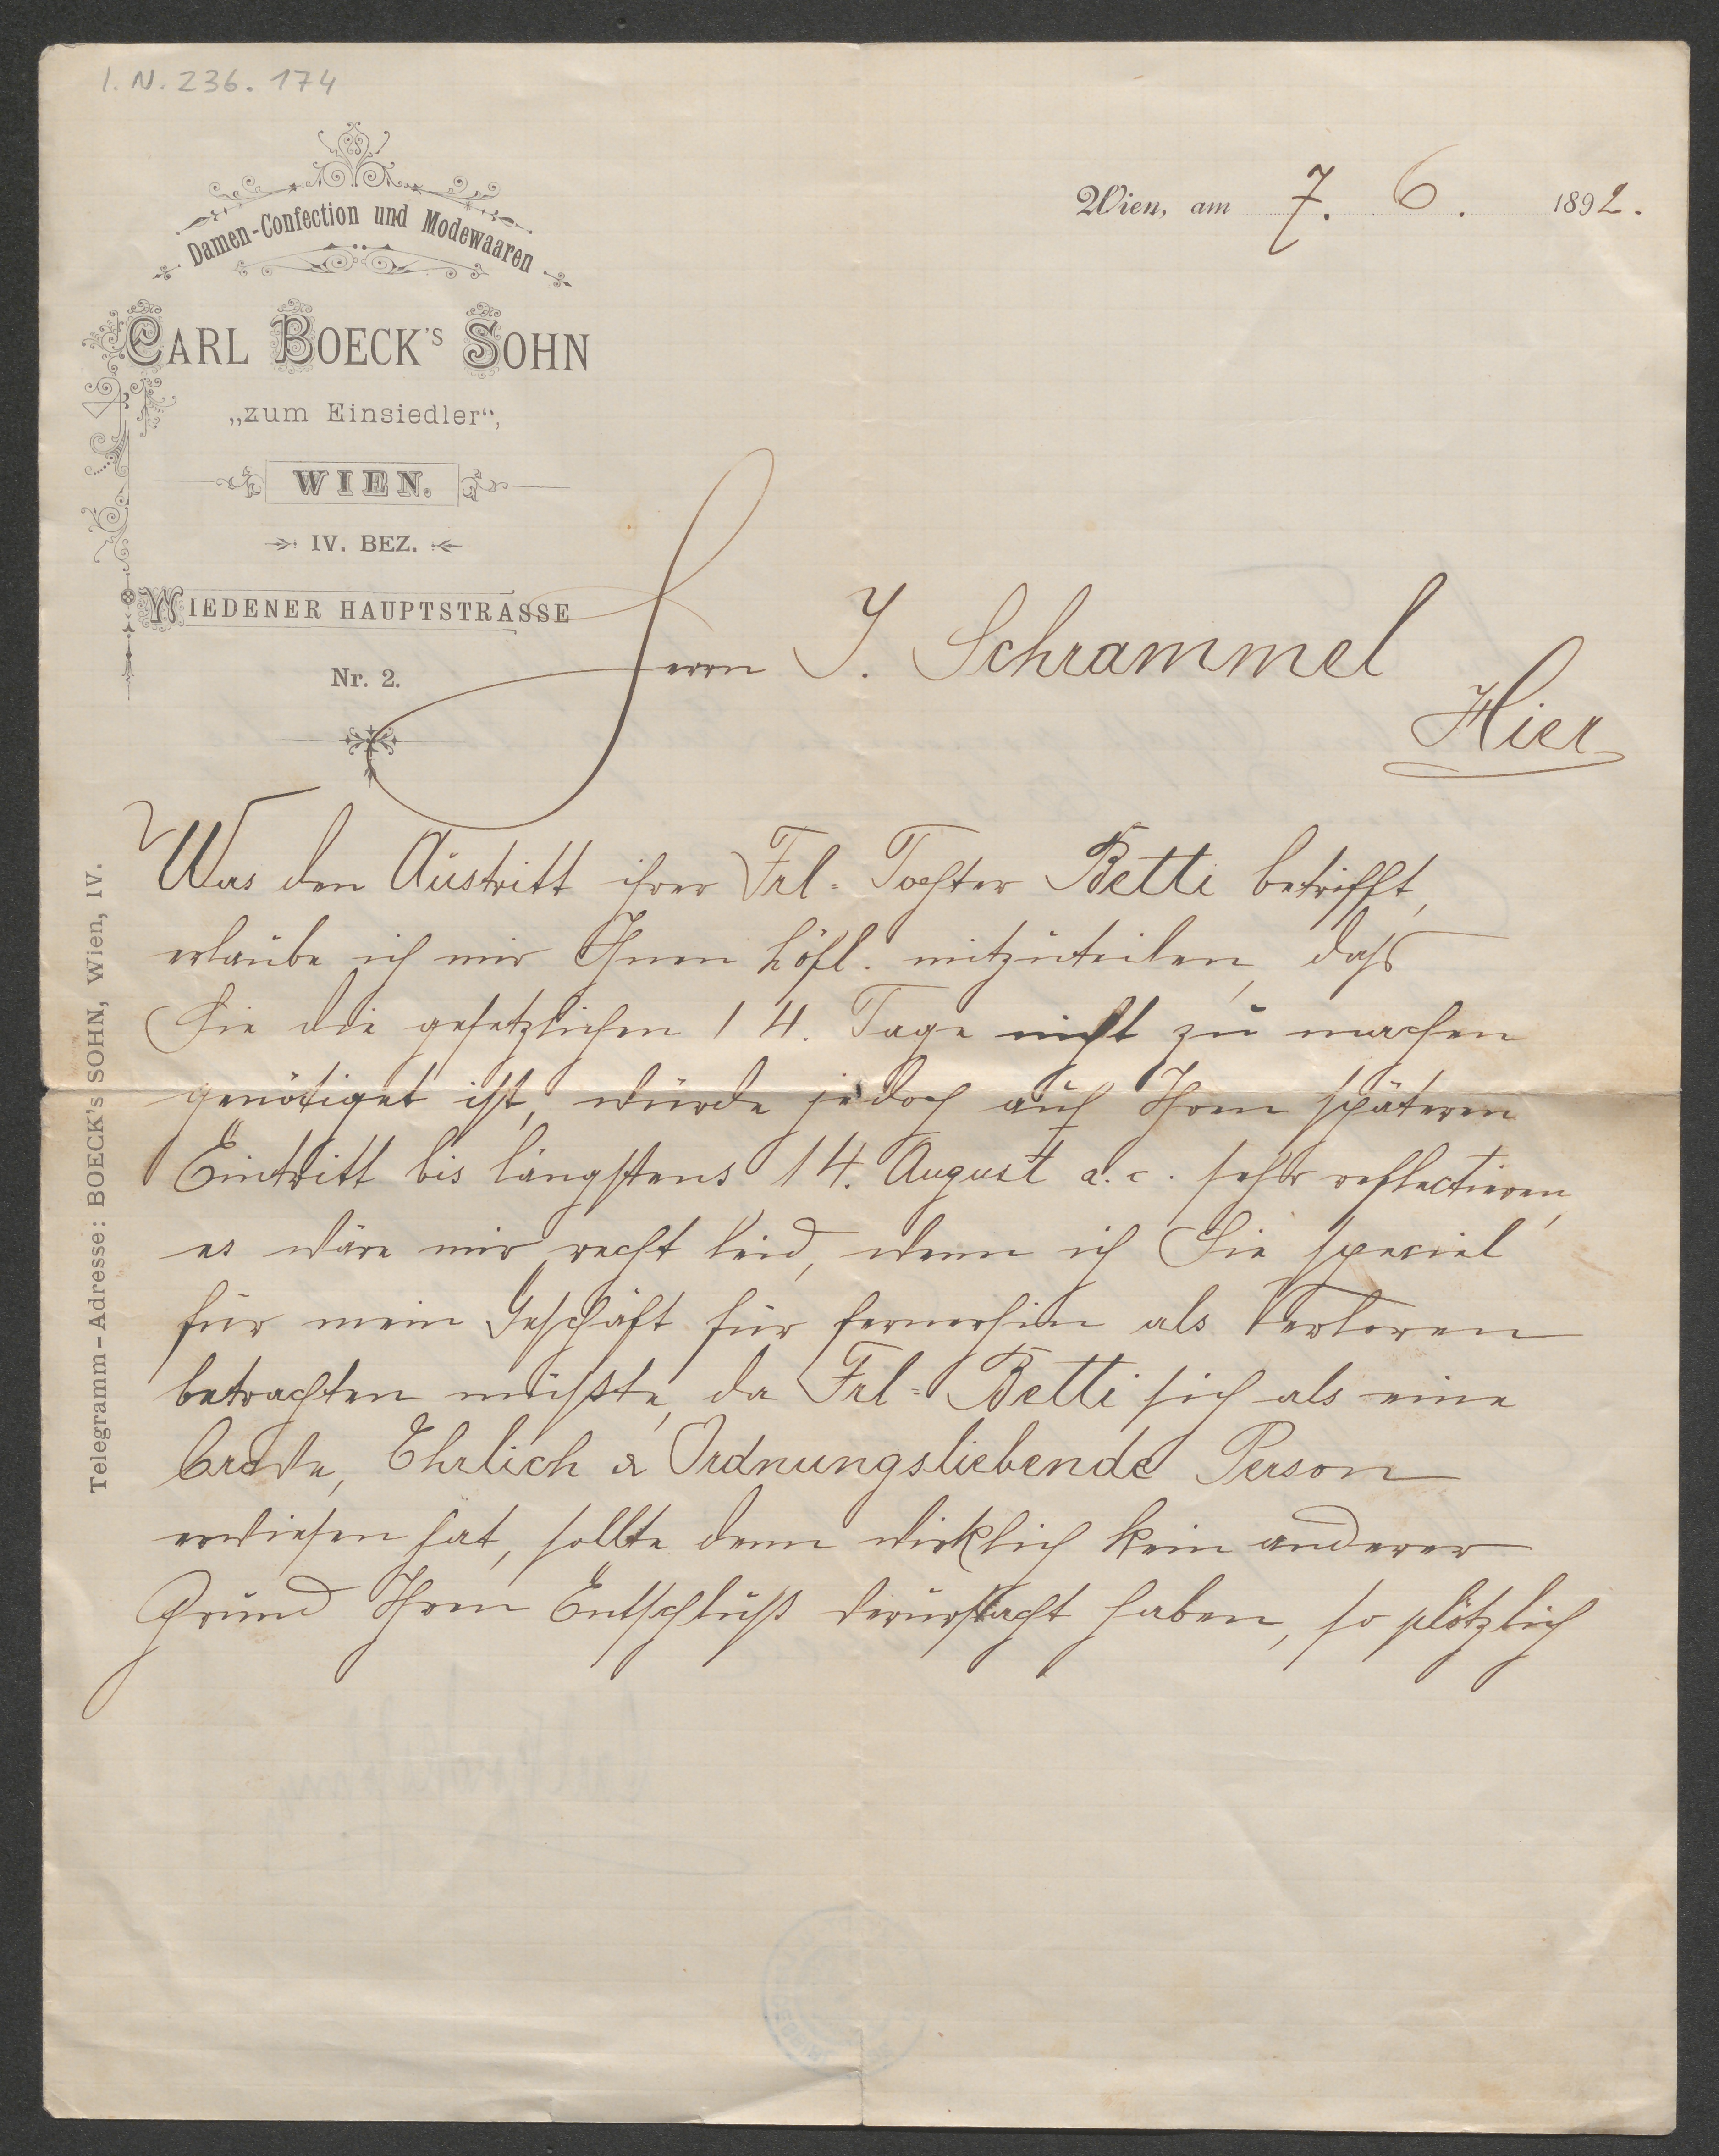 I. N. 236. 174
Damen-Confection und Modewaaren
CARL BOECK'S SOHN
„zum Einsiedler“,
WIEN.
IV. BEZ.
WIEDENER HAUPTSTRASSE
Nr. 2.
Telegramm-Adresse: BOECK's SOHN, Wien, IV.
Wien, am 7. 6. 1892.
Herrn J. Schrammel
Hier
Was den Austritt ihrer Frl= Tochter Betti betrifft,
erlaube ich mir Ihnen höfl. mitzuteilen, daß
Sie die gesetzlichen 14. Tage nicht zu machen
genötiget ist, würde jedoch auf Ihren späteren
Eintritt bis längstens 14. August a. c. sehr reflectieren,
es wäre mir recht leid, wenn ich Sie speciel
für mein Geschäft für fernerhin als Verloren
betrachten müßte, da Frl= Betti sich als eine
brave, Ehrlich & Ordnungsliebende Person
erwiesen hat, sollte denn wirklich kein anderer
Grund Ihren Entschluß verursacht haben, so plötzlich